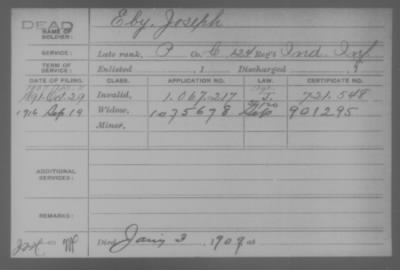 DEAD
NAME OF SOLDIER: Eby, Joseph
SERVICE: Late rank, P Co. C, 124 Reg't Ind. Inf.
TERM OF SERVICE: Enlisted , 1 Discharged , 1
DATE OF FILING. CLASS. APPLICATION NO. LAW. CERTIFICATE NO.
1891 Oct. 29 Invalid, 1.067.217 721.548
1916 Sep. 19 Widow, 1075678 901295
Minor,
ADDITIONAL SERVICES:
REMARKS:
Died Jan'y 3, 1909, at